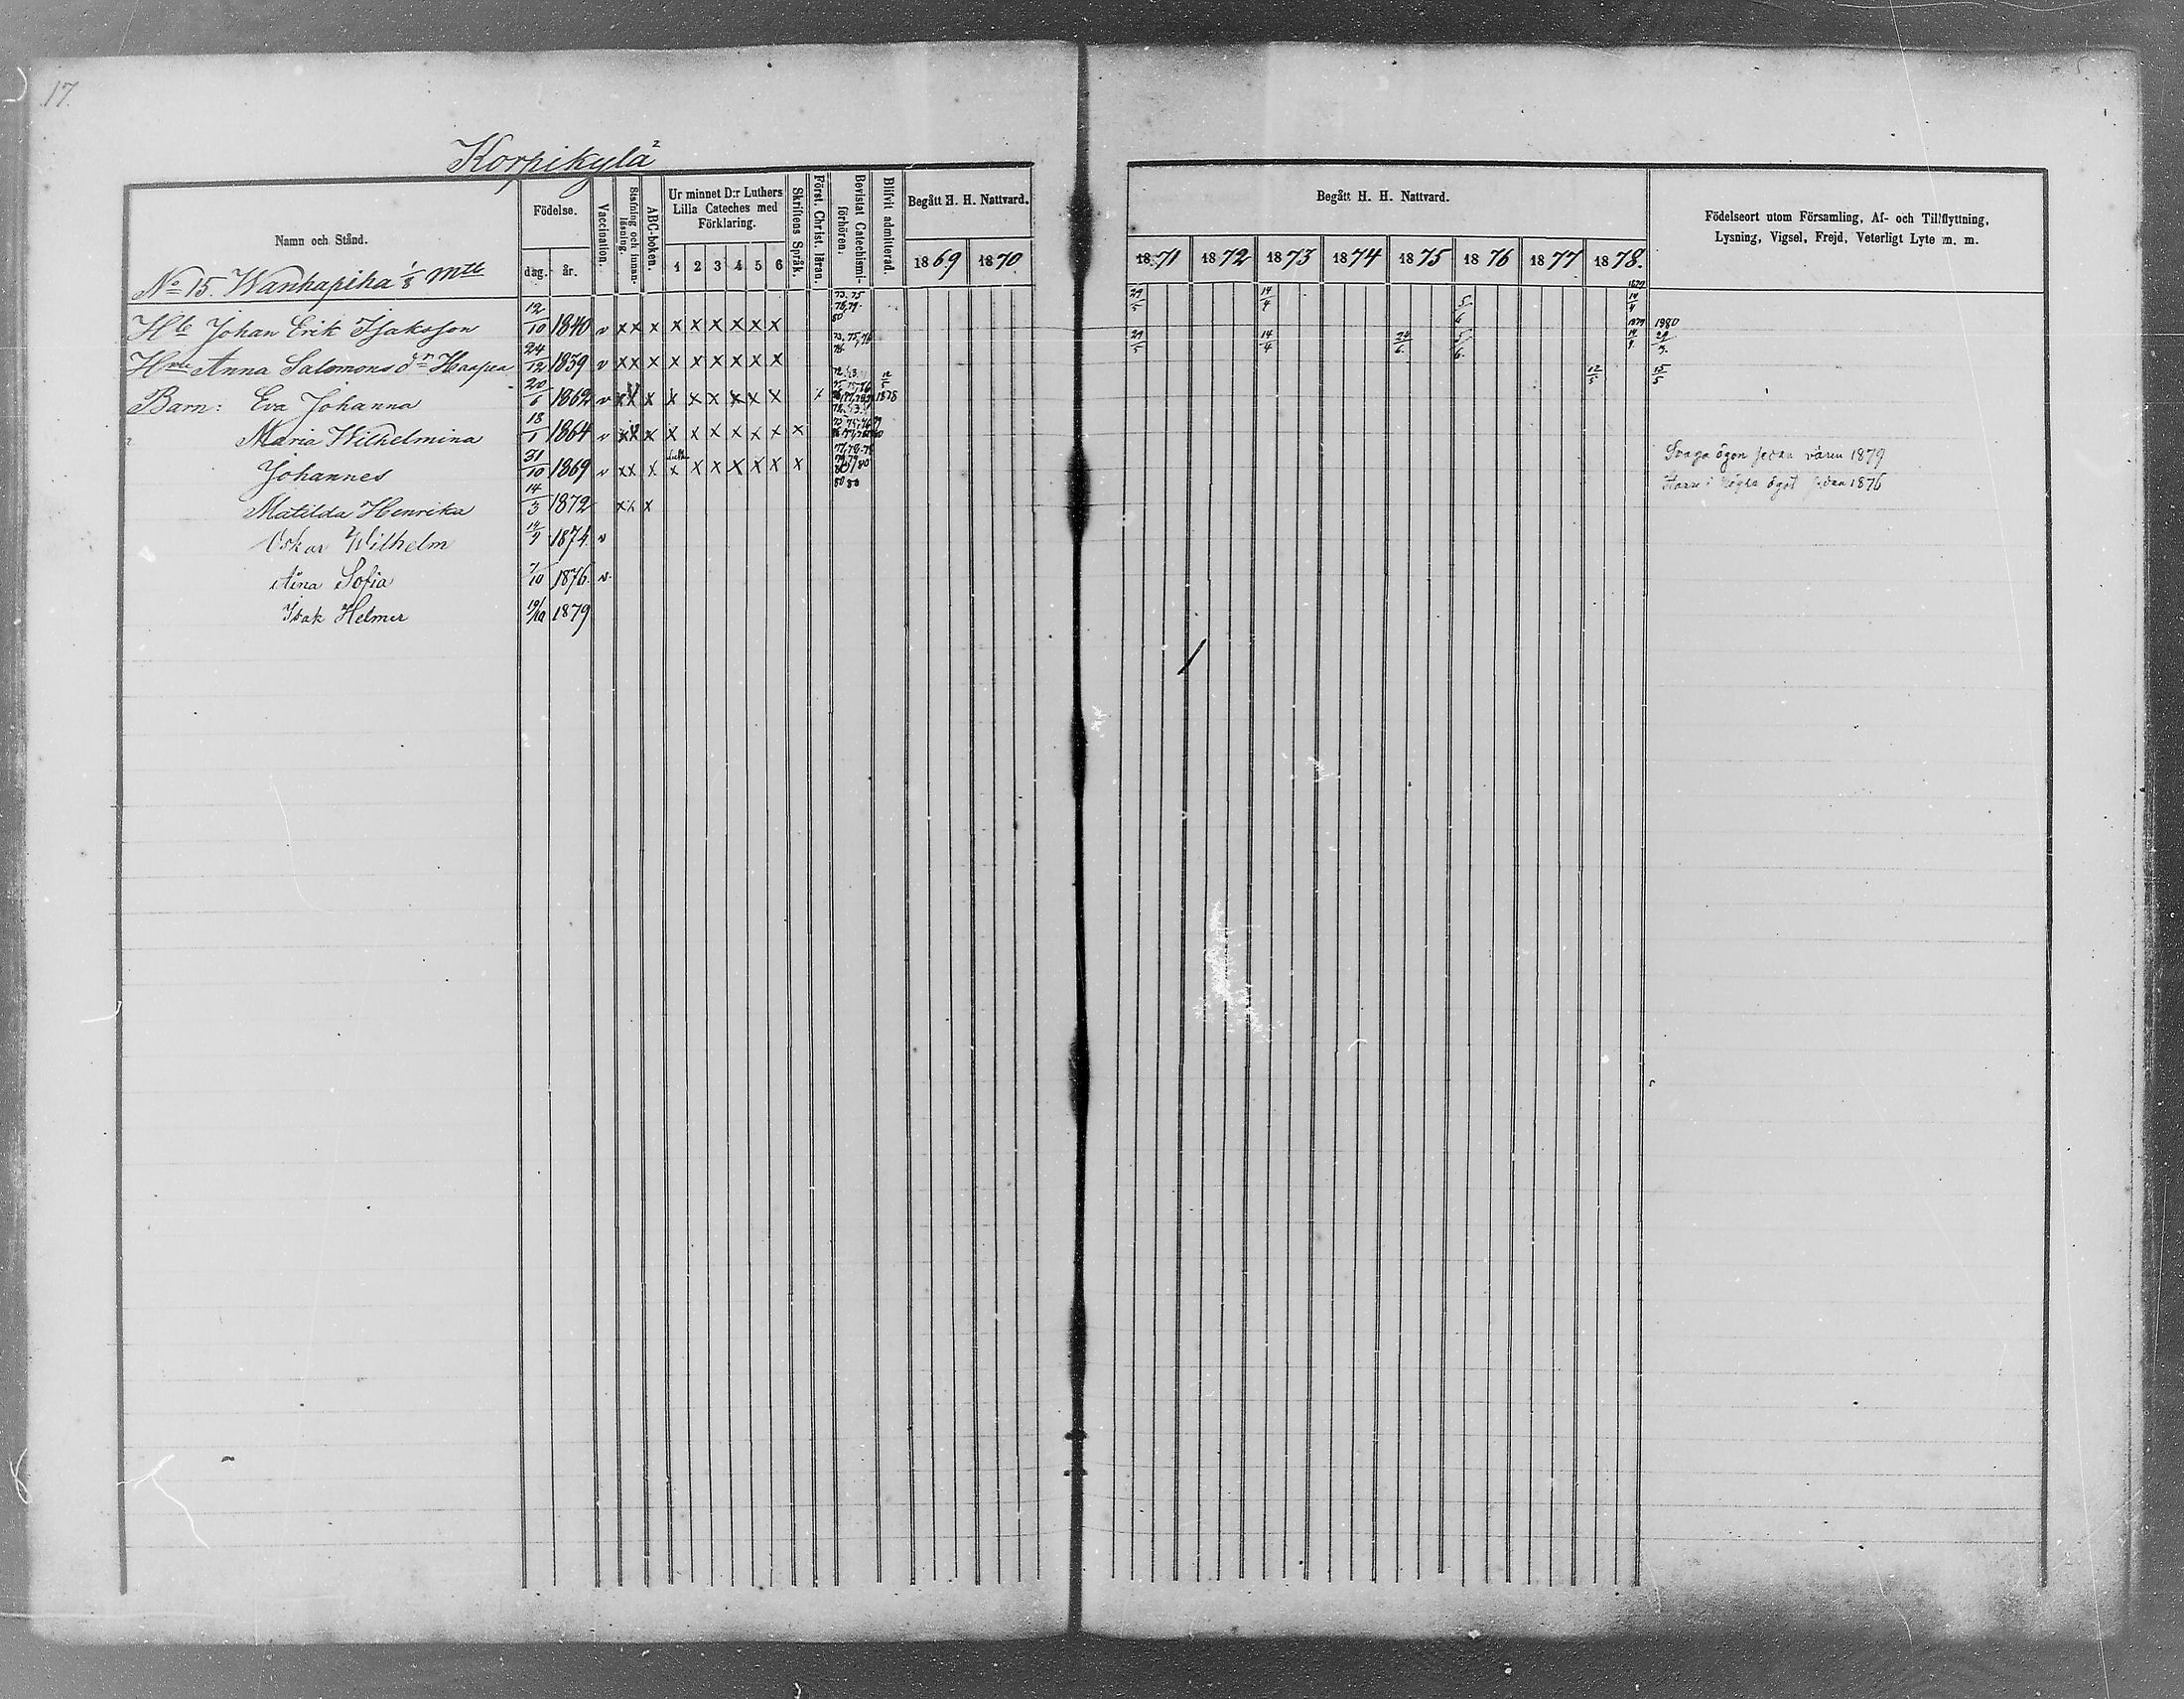 17.
Korpikylä
Namn och Stånd.
Födelse.
dag.
år.
Vaccination.
Stafning och innanläsning.
ABC-boken.
Ur minnet D:r Luthers Lilla Cateches med Förklaring.
1 2 3 4 5 6
Skriftens Språk.
Förest. Christ. läran.
Bevistat Catechismi-förhören.
Blifvit admitterad.
Begått H. H. Nattvard.
1869 1870
Begått H. H. Nattvard.
1871 1872 1873 1874 1875 1876 1877 1878.
Födelseort utom Församling, Af- och Tillflyttning,
Lysning, Vigsel, Frejd, Veterligt Lyte m. m.
No 15. Wanhapiha 1/8 mtl
Hb Johan Erik Isaksson 12/10 1840 v x x x x x x x x x 29/5 14/4 5/6 1879 14/4
Hru Anna Salomonsdn Haapa 24/12 1839 v x x x x x x x x x 29/5 14/4 24/6 5/6 1879 1880
Barn: Eva Johanna 20/6 1862 v x x x x x x x x x 1878 12/5 15/5
Maria Wilhelmina 18/1 1864 v x x x x x x x x x x
Johannes 31/10 1869 v x x x x x x x x x x Svaga ögon sedan våren 1879
Matilda Henrika 14/3 1872 x x x ögat sedan 1876
Oskar Wilhelm 1874 v
Aina Sofia 7/10 1876 v.
Isak Helmer 19/10 1879